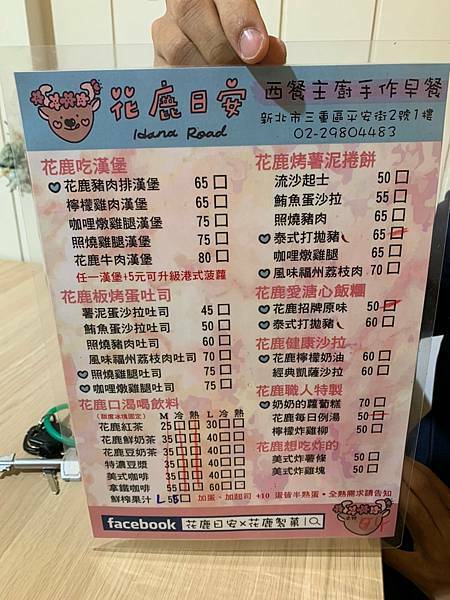 花鹿日安
Hana Road
西餐主廚手作早餐
新北市三重區平安街2號1樓
02-29804483
花鹿吃漢堡
花鹿豬肉排漢堡 65
檸檬雞肉漢堡 65
咖哩燉雞腿漢堡 75
照燒雞腿漢堡 75
花鹿牛肉漢堡 80
任一漢堡+5元可升級港式菠蘿
花鹿板烤蛋吐司
薯泥蛋沙拉吐司 45
鮪魚蛋沙拉吐司 50
照燒豬肉吐司 60
風味福州荔枝肉吐司 70
照燒雞腿吐司 75
咖哩燉雞腿吐司 75
花鹿口渴喝飲料
(甜度冰塊固定) M 冷 熱 L 冷 熱
花鹿紅茶 25 30
花鹿鮮奶茶 35 40
花鹿豆奶茶 35 40
特濃豆漿 35 40
美式咖啡 35 40
拿鐵咖啡 55 60
鮮榨果汁 L 55
花鹿烤薯泥捲餅
流沙起士 50
鮪魚蛋沙拉 55
照燒豬肉 65
泰式打拋豬 65
咖哩燉雞腿 65
風味福州荔枝肉 70
花鹿愛溏心飯糰
花鹿招牌原味 50
泰式打拋豬 60
花鹿健康沙拉
花鹿檸檬奶油 60
經典凱薩沙拉 60
花鹿職人特製
奶奶的蘿蔔糕 70
花鹿每日例湯 50
檸檬炸雞柳 50
花鹿想吃炸的
美式炸薯條 50
美式炸雞塊 50
加蛋、加起司 +10 蛋皆半熟蛋，全熟需求請告知
facebook 花鹿日安×花鹿製菓